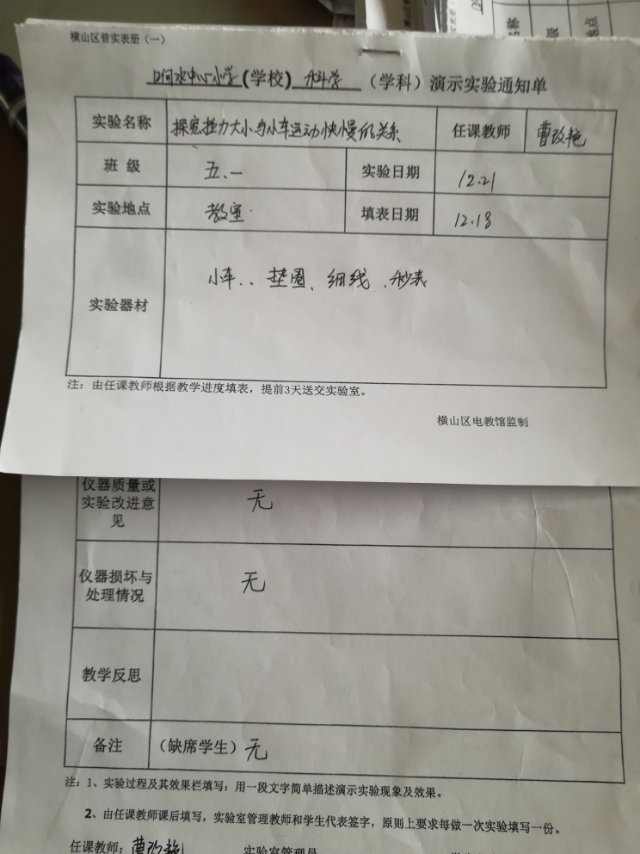 横山区普实表册（一）
水中心小学（学校）科学（学科）演示实验通知单
实验名称 探究拉力大小与小车运动快慢的关系 任课教师 曹改艳
班 级 五.一 实验日期 12.21
实验地点 教室 填表日期 12.18
实验器材 小车、、垫圈、细线、秒表
注：由任课教师根据教学进度填表，提前3天送交实验室。
横山区电教馆监制
仪器质量或
实验改进意
见 无
仪器损坏与
处理情况 无
教学反思
备注 （缺席学生）无
注：1、实验过程及其效果栏填写：用一段文字简单描述演示实验现象及效果。
2、由任课教师课后填写，实验室管理教师和学生代表签字，原则上要求每做一次实验填写一份。
任课教师：曹改艳 实验室管理员